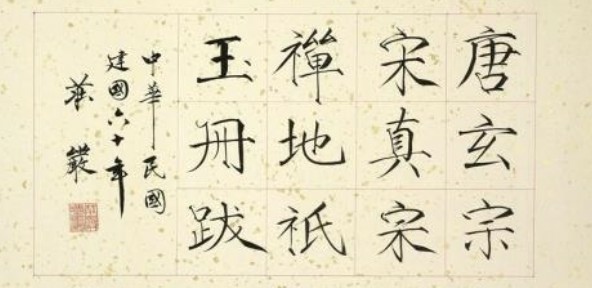 唐玄宗
宋真宗
禪地祇
玉冊跋
中華民國
建國六十年
莊嚴